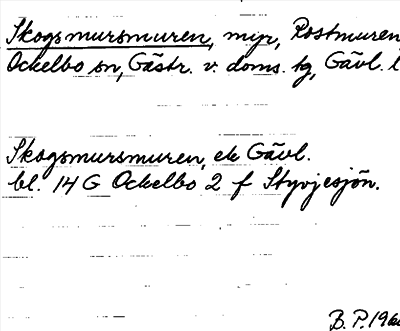 Skogsmursmuren, myr, Postmuren
Ockelbo sn, Gästr. v. doms. tg, Gävl. l
Skogsmursmuren, ek Gävl.
bl. 14 G Ockelbo 2 f Styvjesjön.
B. P. 196